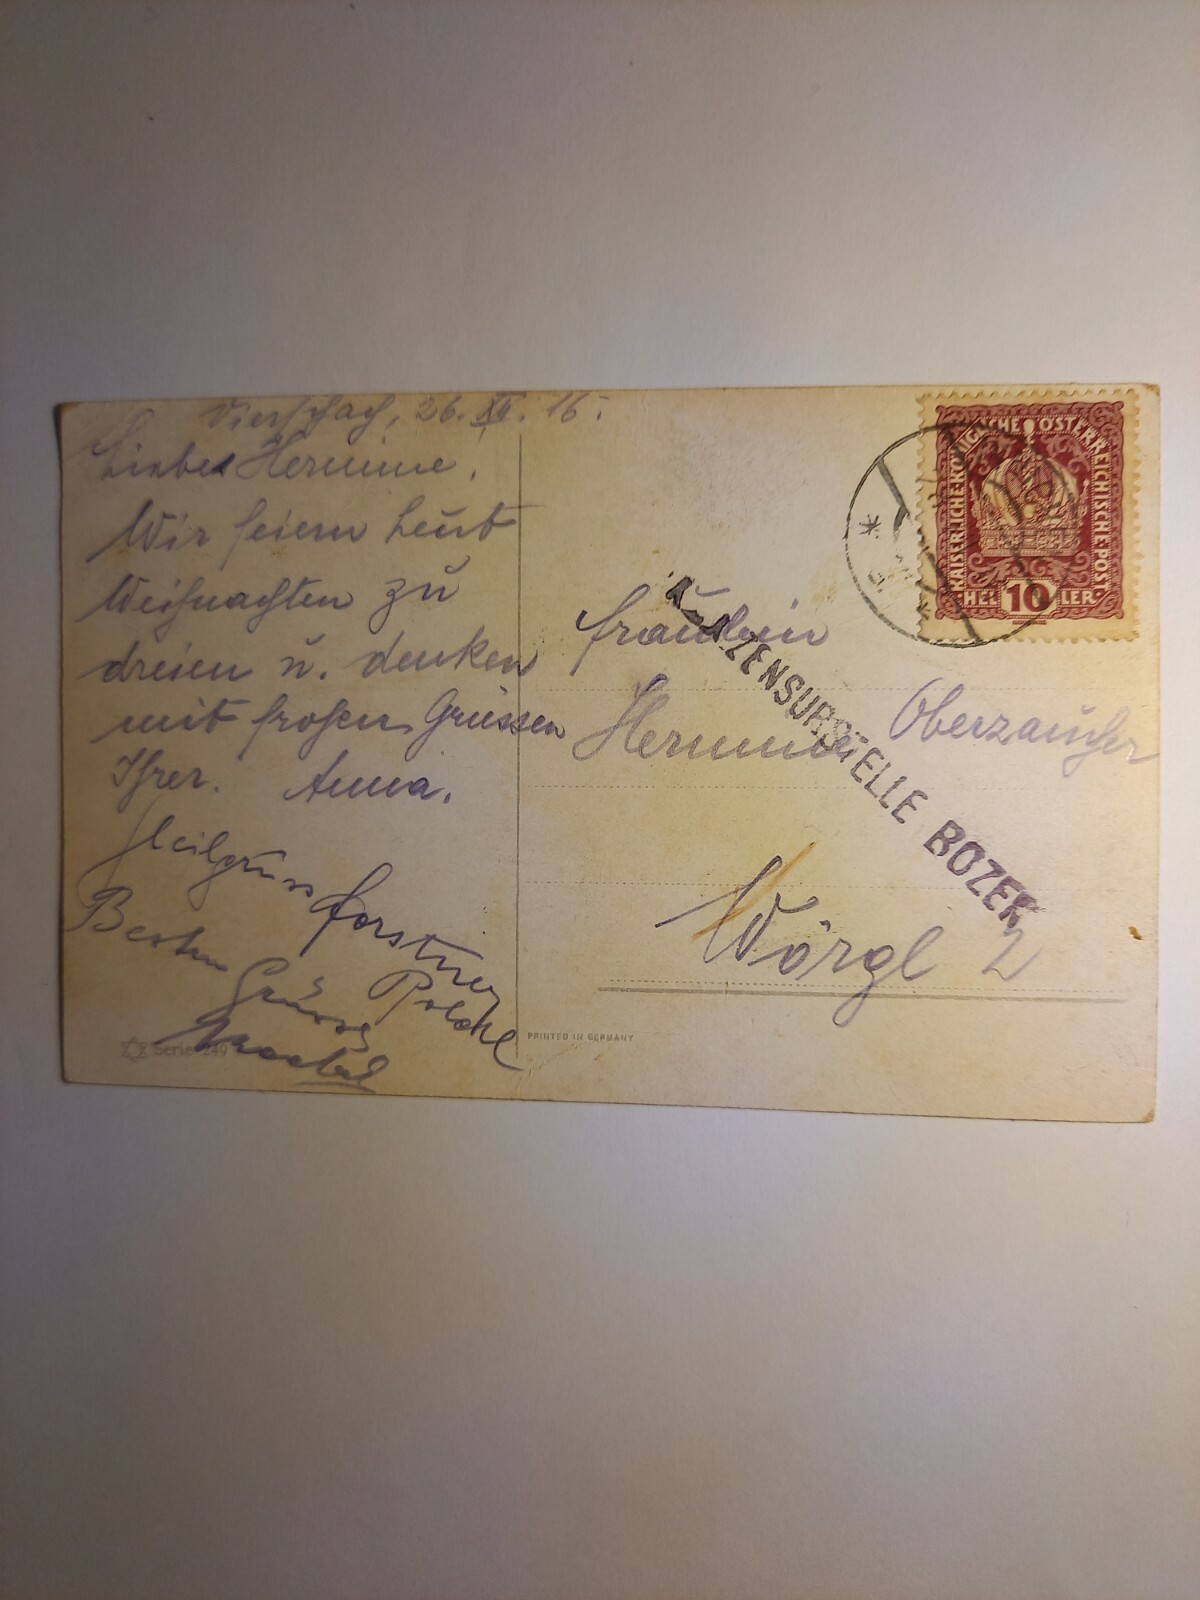 Vierschach, 26. XII. 16.
Liebe Hermine.
Wir feiern heut
Weihnachten zu
dreien u. denken
mit frohen Grüssen
Ihrer. Anna.
Heilgruss Forstner
Besten
Grüsse
Serie 249
PRINTED IN GERMANY
KAISERLICHE KÖNIGLICHE ÖSTERREICHISCHE POST
HELLER
10
K.K. ZENSURSTELLE BOZEN
Fräulein
Hermine Oberzaucher
Wörgl 2